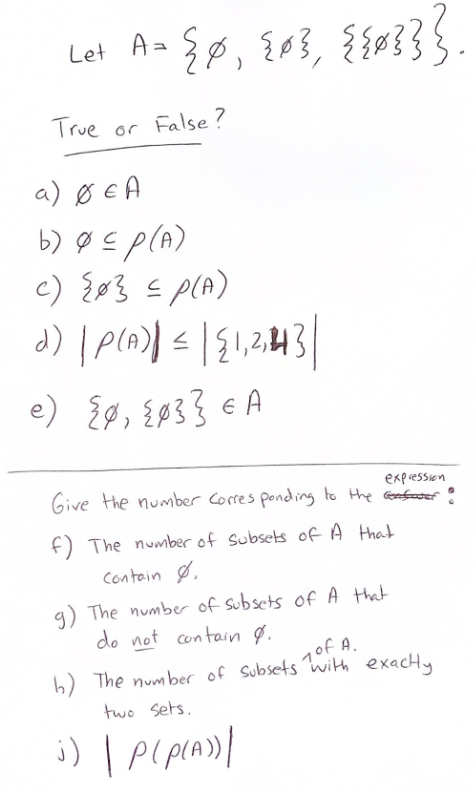 Let A = {∅, {∅}, {{∅}}}.
True or False?
a) ∅ ∈ A
b) ∅ ⊆ P(A)
c) {∅} ⊆ P(A)
d) |P(A)| ≤ |{1,2,4}|
e) {∅, {∅}} ∈ A
expression
Give the number corresponding to the answer :
f) The number of subsets of A that
contain ∅.
g) The number of subsets of A that
do not contain ∅.
of A.
h) The number of subsets with exactly
two sets.
j) | P(P(A))|